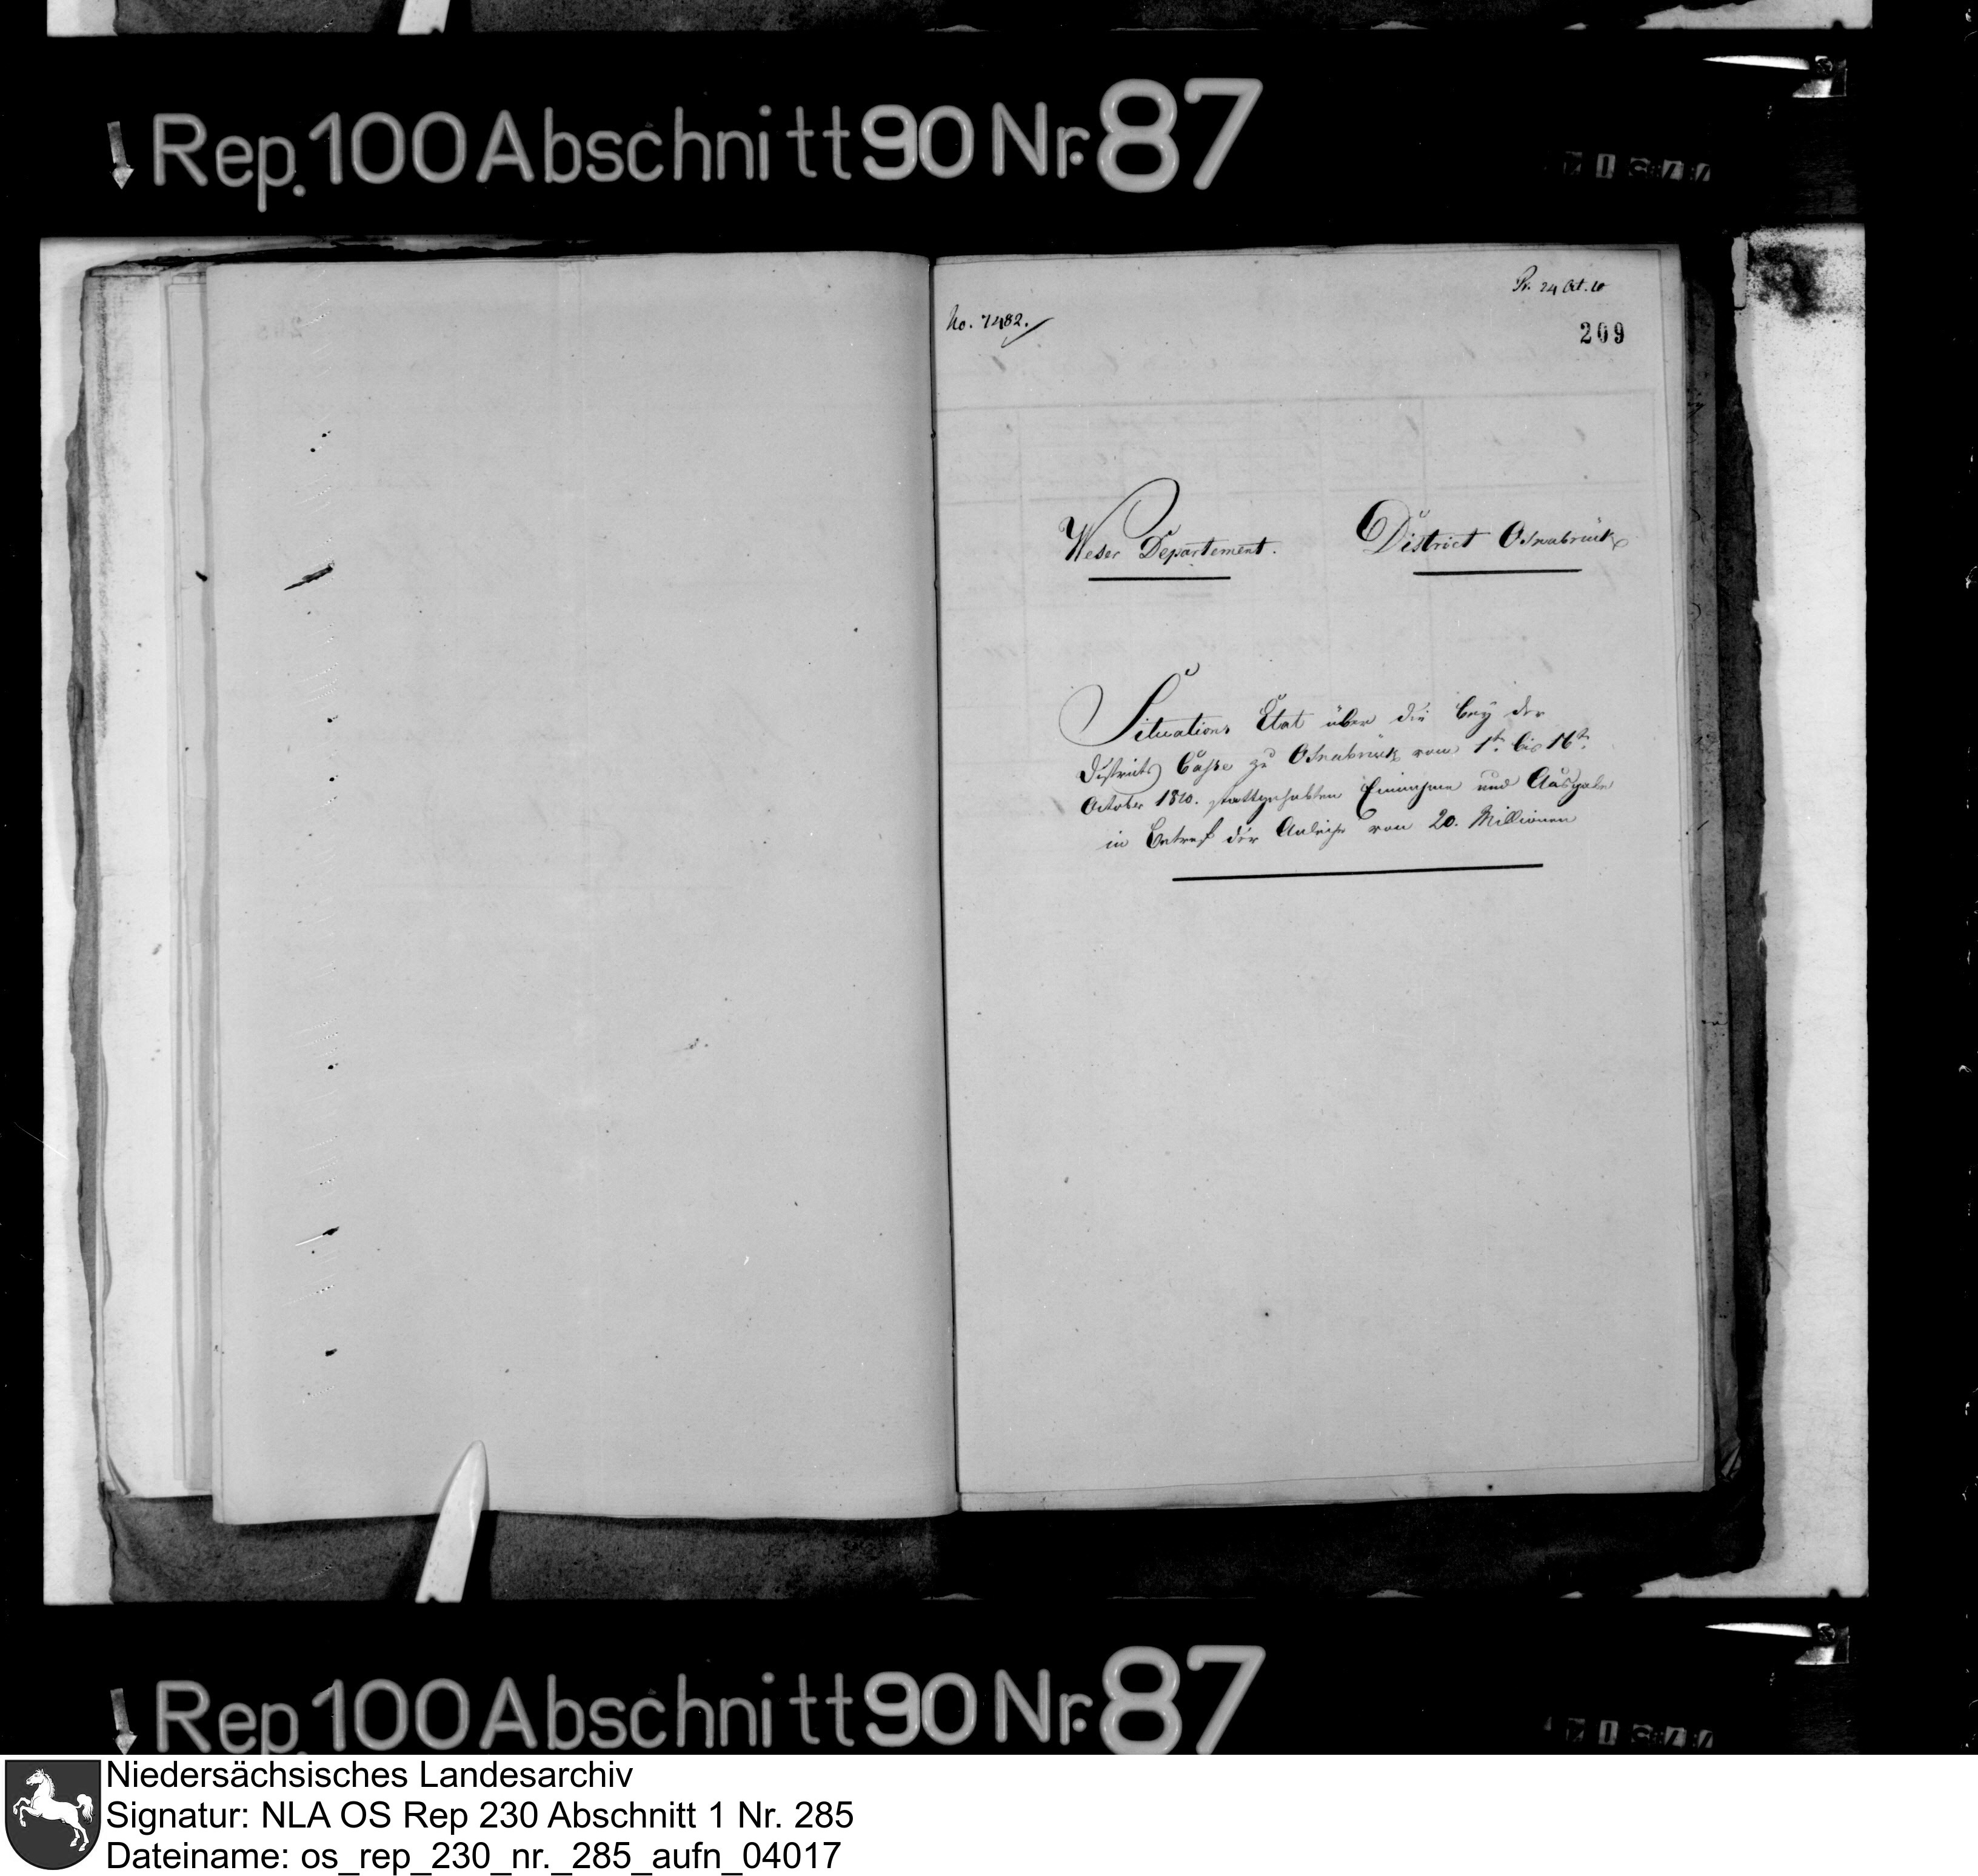 Rep. 100 Abschnitt 90 Nr. 87
Pr. 24 Oct. 10
No. 7482.
209
Weser Departement. District Osnabrück
Situations Etat über die bey der
Districts Casse zu Osnabrück vom 1t. bis 16t.
October 1810. stattgehabten Einnahme und Ausgabe
in Betref der Anleihe von 20. Millionen
Rep. 100 Abschnitt 90 Nr. 87
Niedersächsisches Landesarchiv
Signatur: NLA OS Rep 230 Abschnitt 1 Nr. 285
Dateiname: os_rep_230_nr._285_aufn_04017